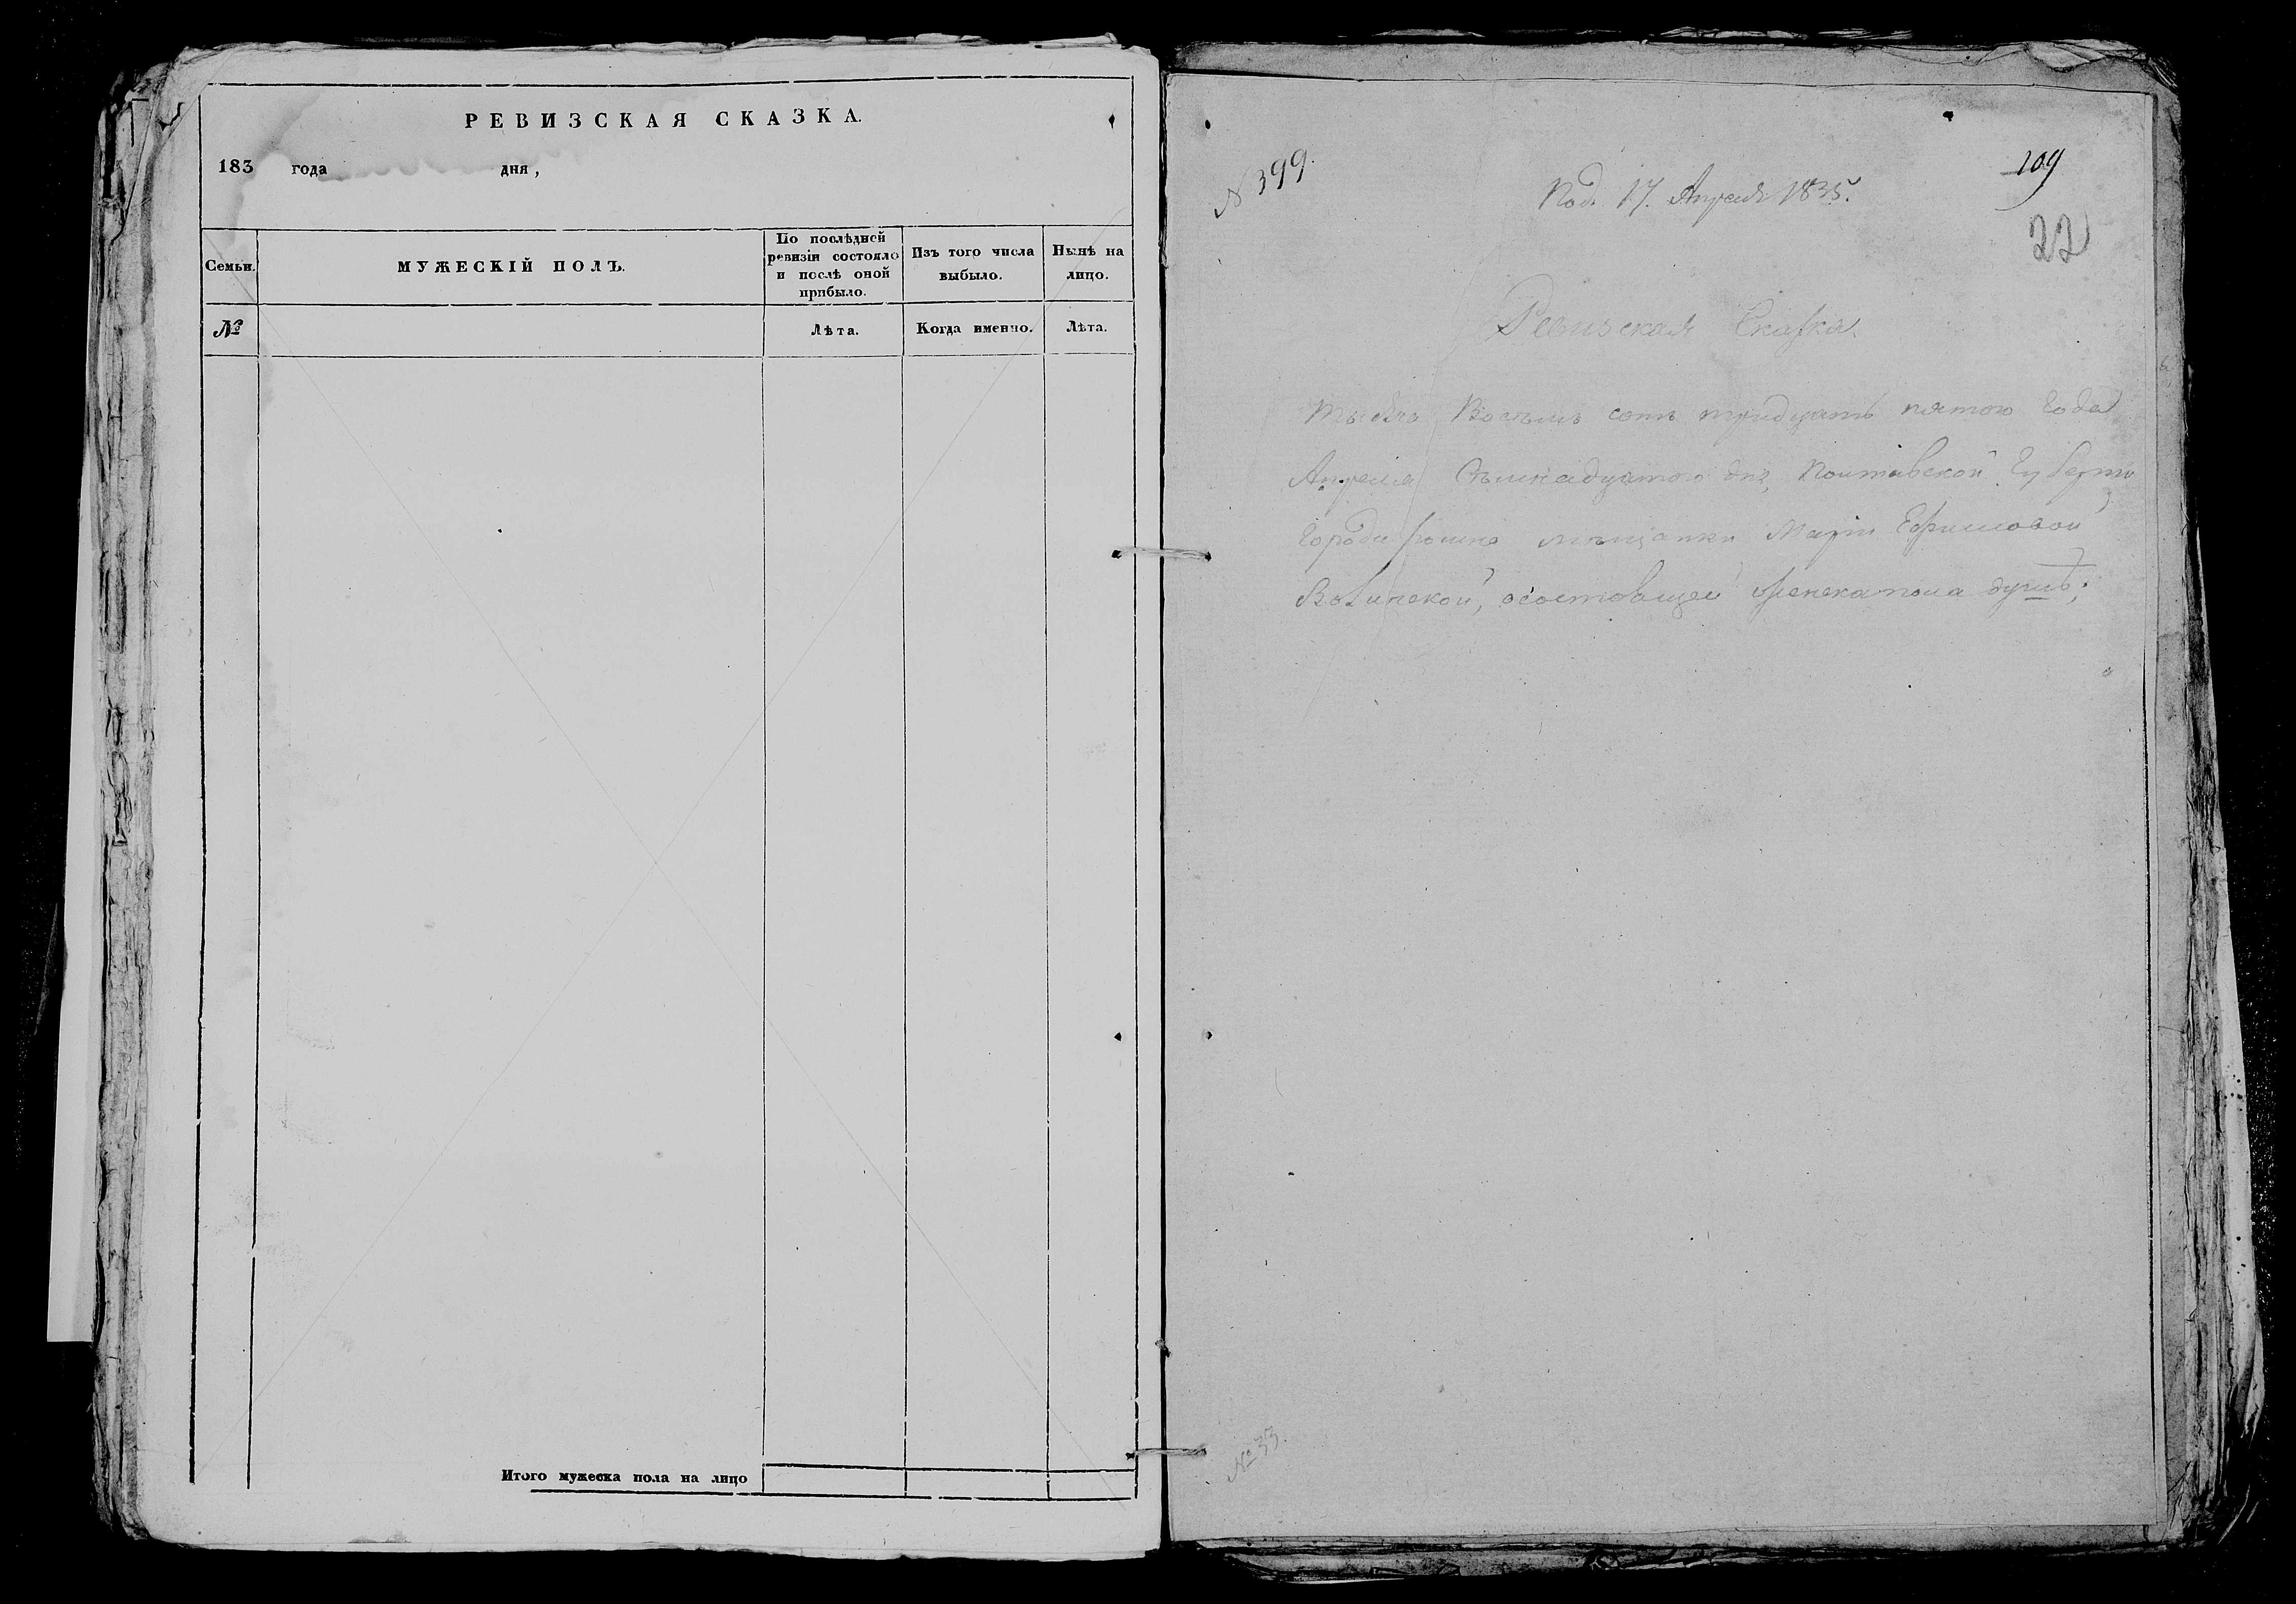 РЕВИЗСКАЯ СКАЗКА.
183 года дня,
Семьи.
МУЖЕСКІЙ ПОЛЪ.
По послѣдней
ревизіи состояло
и послѣ оной
прибыло.
Изъ того числа
выбыло.
Нынѣ на
лицо.
№
Лѣта.
Когда именно.
Лѣта.
Итого мужеска пола на лицо
N 399.
Под. 17. Апреля 1835.
109
22
Ревизская Сказка
Тысяча Восемь сотъ тридцать пятого Года
Апреля дня, Полтавской Губерніи
Города Ромна мещанки Маріи Ефимовой
женска пола душѣ;
№ 33.